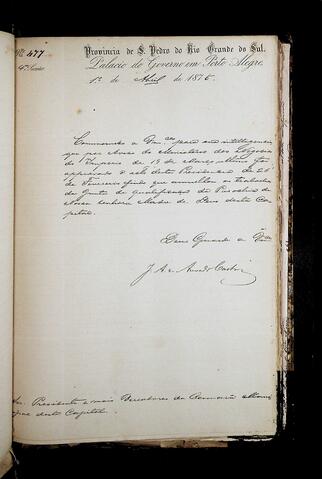 Nº 477
4ª Secção
Provincia de S. Pedro do Rio Grande do Sul.
Palacio do Governo em Porto Alegre,
1º de Abril de 1876.
Communico a Vmces para sua intelligencia
que por Aviso do Ministerio dos Negocios
do Imperio de 13 de Março ultimo foi
approvado o acto desta Presidencia de 26
de Fevereiro findo que annullou os trabalhos
da Junta de Qualificação da Parochia de
Nossa Senhora Madre de Deus desta Ca
pital.
Deus Guarde a Vmces
J. A. de Azevedo Castro
Snr. Presidente e mais Vereadores da Camara Munici
pal desta Capital.